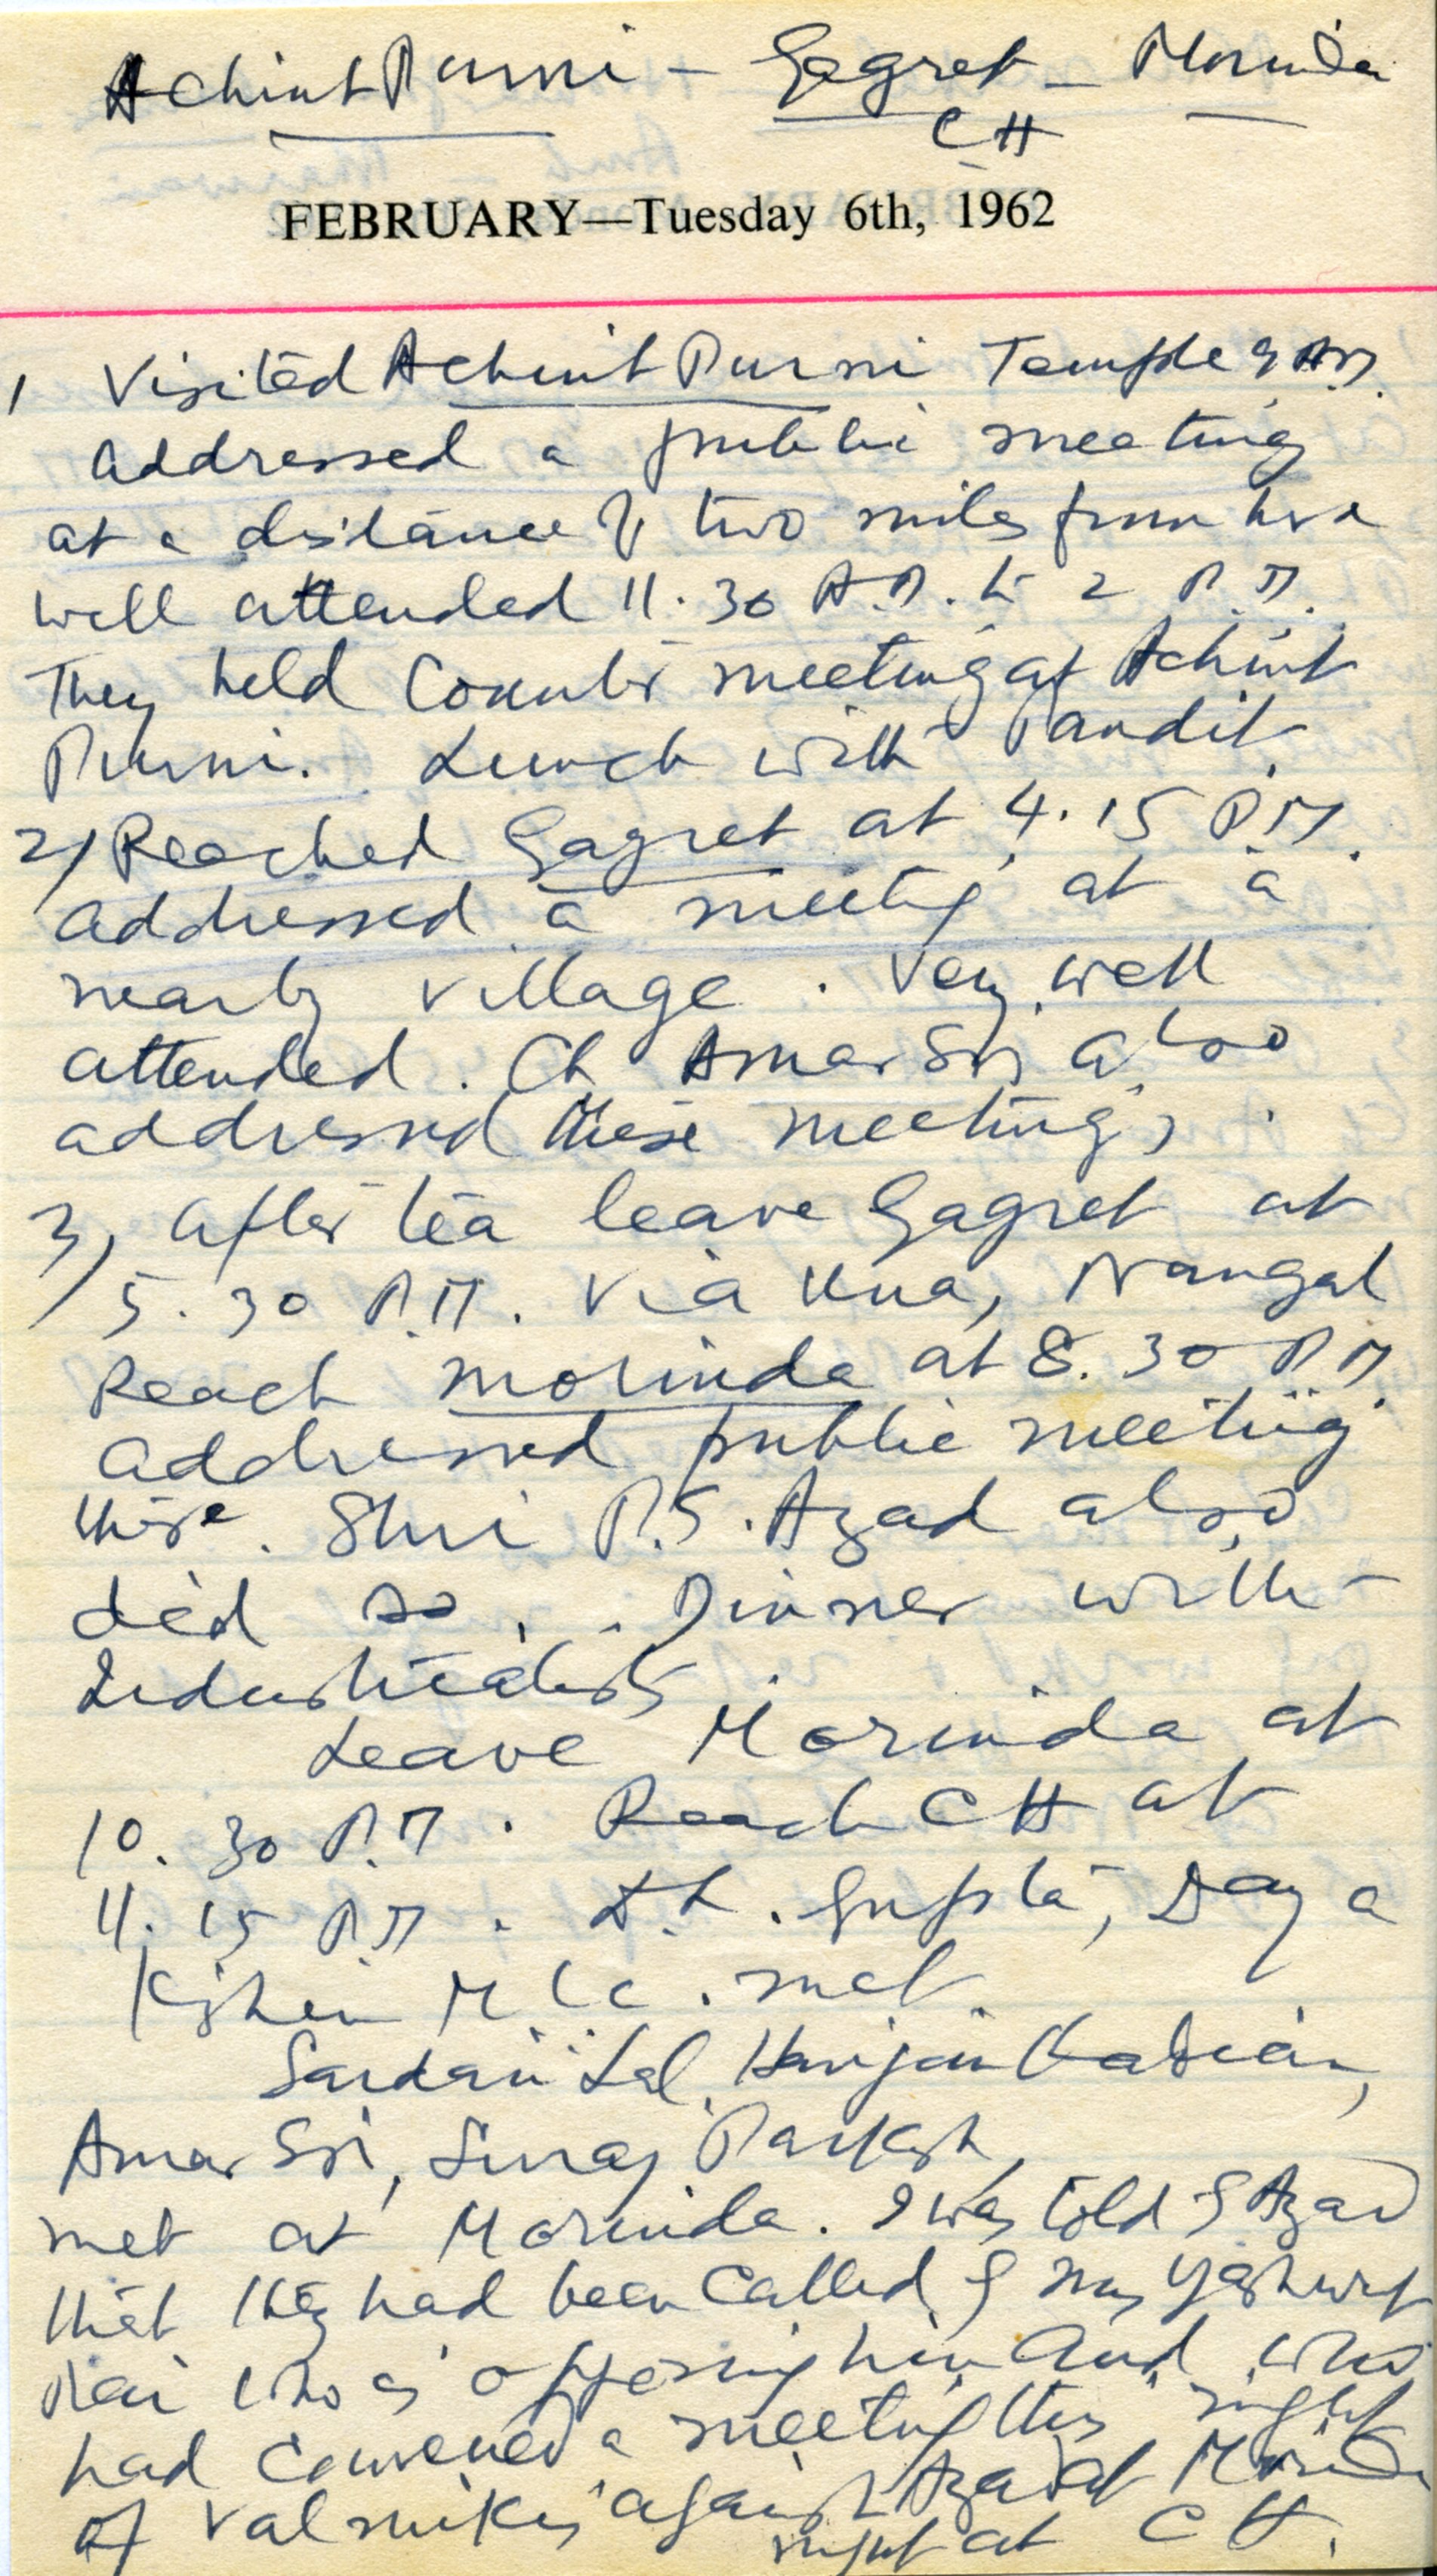 Achint Purni - Gagret - Morinda
CH
FEBRUARY—Tuesday 6th, 1962
1 Visited Achint Purni Temple 9 A.M.
addressed a public meeting
at a distance of two miles from here
well attended 11.30 A.M. to 2 P.M.
They held Counter meeting at Achint
Purni. Lunch with Pandit.
2) Reached Gagret at 4.15 P.M.
addressed a meeting at a
nearby village. Very well
attended. Ch Amar Sri also
addressed these meetings.
3) after tea leave Gagret at
5.30 P.M. Via Una, Nangal
Reach Morinda at 8.30 P.M.
addressed public meeting
there. Shri P.S. Azad also
did so. Dinner with
Industrialists
Leave Morinda at
10.30 P.M. Reach CH at
11.15 P.M. D.L. Gupta, Daya
Kishen MLC. met.
Sardari Lal, Harijan
Amar Sri, Suraj Parkash
met at Morinda. I was told by Azad
that they had been Called by Mrs Yashwant
Rai who is opposing him and who
had convened a meeting this night
of Valmikis against Azad at Morinda
night at CH.